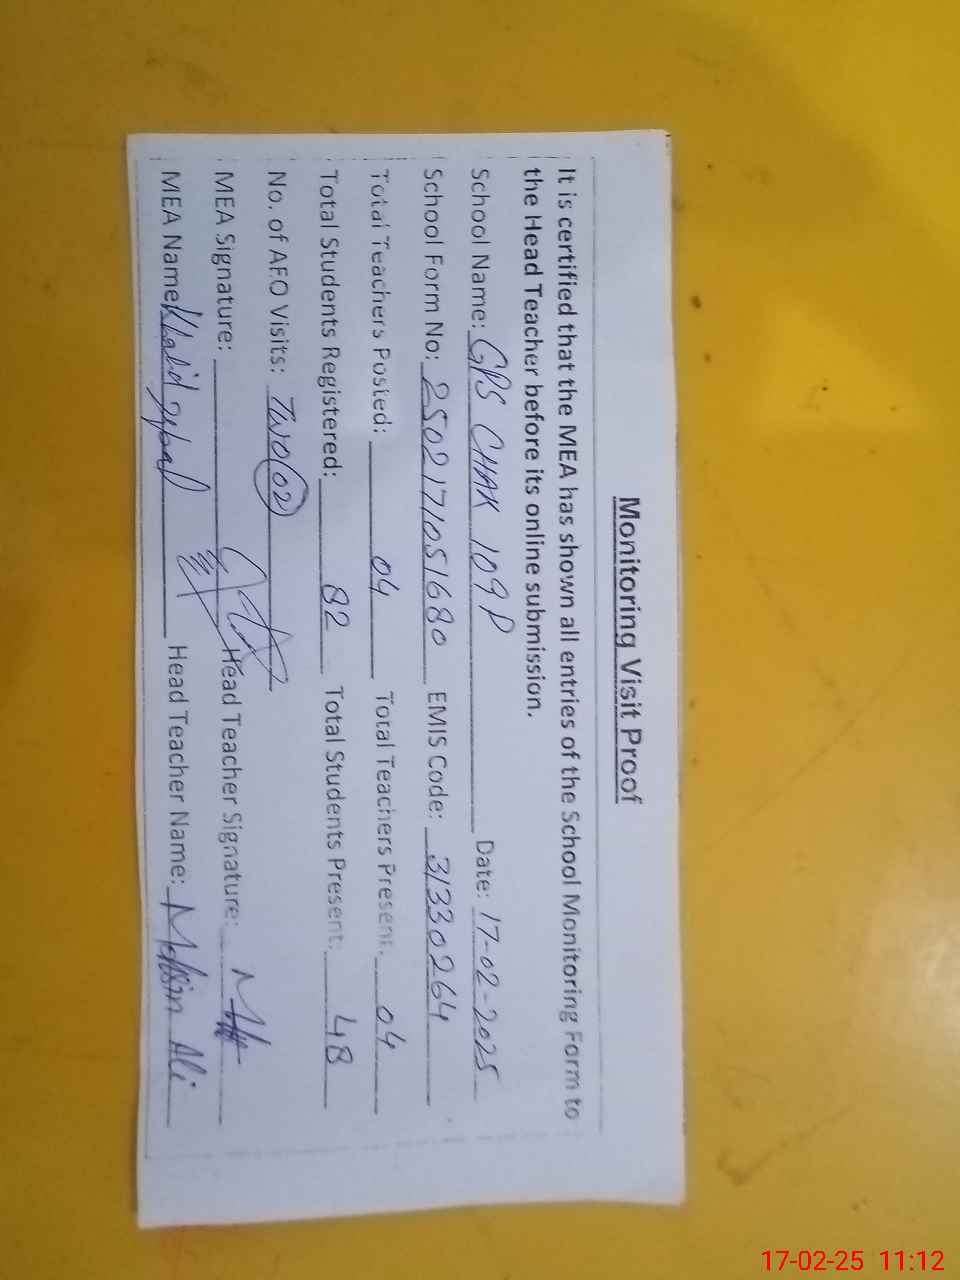 Monitoring Visit Proof
It is certified that the MEA has shown all entries of the School Monitoring Form to
the Head Teacher before its online submission.
School Name: GPS CHAK 109 P Date: 17-02-2025
School Form No: 2502171051680 EMIS Code: 31330264
Total Teachers Posted: 04 Total Teachers Present: 04
Total Students Registered: 82 Total Students Present: 48
No. of AEO Visits: Two (02)
MEA Signature: Head Teacher Signature:
MEA Name: Khalid Head Teacher Name: Mohsin Ali
17-02-25 11:12